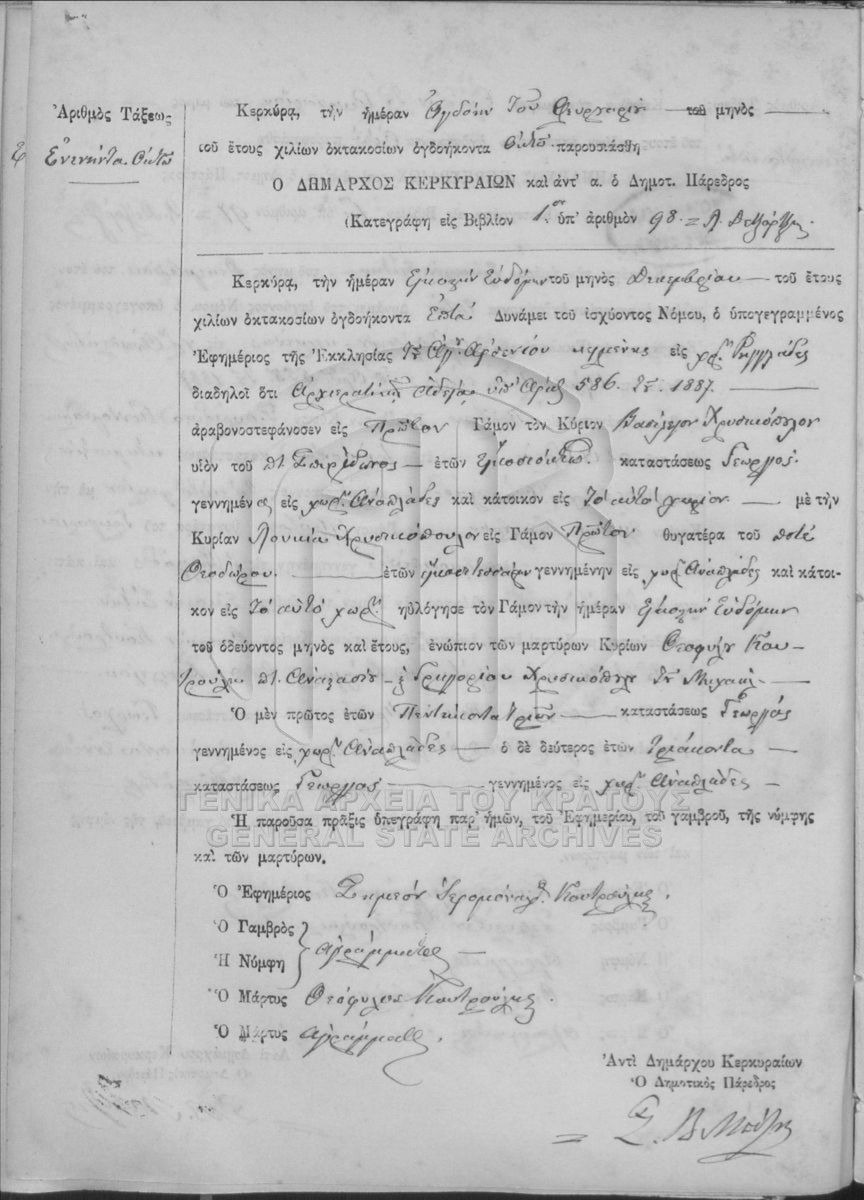 Ἀριθμὸς Τάξεως
Ἐνενήντα Ὀκτὼ
Κερκύρα, τὴν ἡμέραν Ὀγδόην τοῦ Φευρουαρίου τοῦ μηνὸς
τοῦ ἔτους χιλίων ὀκτακοσίων ὀγδοήκοντα ὀκτὼ παρουσιάσθη
Ὁ ΔΗΜΑΡΧΟΣ ΚΕΡΚΥΡΑΙΩΝ καὶ ἀντ' α. ὁ Δημοτ. Πάρεδρος
(Κατεγράφη εἰς Βιβλίον 1ον ὑπ' ἀριθμὸν 98 =
Κερκύρα, τὴν ἡμέραν Εἰκοστὴν Ἑβδόμην τοῦ μηνὸς Δεκεμβρίου τοῦ ἔτους
χιλίων ὀκτακοσίων ὀγδοήκοντα Ἑπτὰ Δυνάμει τοῦ ἰσχύοντος Νόμου, ὁ ὑπογεγραμμένος
Ἐφημέριος τῆς Ἐκκλησίας τοῦ Ἁγ. Ἀρσενίου κειμένης εἰς χωρ.
διαδηλοῖ ὅτι Ἀρχιερατικῇ ἀδείᾳ ὑπ' Ἀριθ 586. 1887.
ἀραβονοστεφάνοσεν εἰς Πρῶτον Γάμον τὸν Κύριον Βασίλειον Χρυσικόπουλον
υἱὸν τοῦ π. Σπυρίδωνος ἐτῶν εἰκοσιοκτὼ καταστάσεως Γεωργὸς
γεννημένος εἰς χωρ. Ἀναπλάδες καὶ κάτοικον εἰς τὸ αὐτὸ χωρίον μὲ τὴν
Κυρίαν Λουκίαν Χρυσικόπουλον εἰς Γάμον Πρῶτον θυγατέρα τοῦ ποτὲ
Θεοδώρου ἐτῶν εἰκοσιτεσσάρων γεννημένην εἰς χωρ. Ἀναπλάδες καὶ κάτοι-
κον εἰς τὸ αὐτὸ χωρ. ηὐλόγησε τὸν Γάμον τὴν ἡμέραν Εἰκοστὴν Ἑβδόμην
τοῦ ὁδεύοντος μηνὸς καὶ ἔτους, ἐνώπιον τῶν μαρτύρων Κυρίων Θεοφίλου Κου-
τρούλη π. Ἀναστασίου Γρηγορίου Χρυσικόπουλου τοῦ Μιχαήλ
Ὁ μὲν πρῶτος ἐτῶν Πεντήκοντα τριῶν καταστάσεως Γεωργὸς
γεννημένος εἰς χωρ. Ἀναπλάδες ὁ δὲ δεύτερος ἐτῶν τριάκοντα
καταστάσεως Γεωργὸς γεννημένος εἰς χωρ. Ἀναπλάδες
ΓΕΝΙΚΑ ΑΡΧΕΙΑ ΤΟΥ ΚΡΑΤΟΥΣ
GENERAL STATE ARCHIVES
Ἡ παροῦσα πρᾶξις ὑπεγράφη παρ' ἡμῶν, τοῦ Ἐφημερίου, τοῦ γαμβροῦ, τῆς νύμφης
καὶ τῶν μαρτύρων.
Ὁ Ἐφημέριος Συμεὼν Ἱερομόναχος Κουτρούλης
Ὁ Γαμβρὸς
Ἡ Νύμφη ἀγράμματοι
Ὁ Μάρτυς Θεόφιλος Κουτρούλης
Ὁ Μάρτυς ἀγράμματος
Ἀντὶ Δημάρχου Κερκυραίων
Ὁ Δημοτικὸς Πάρεδρος